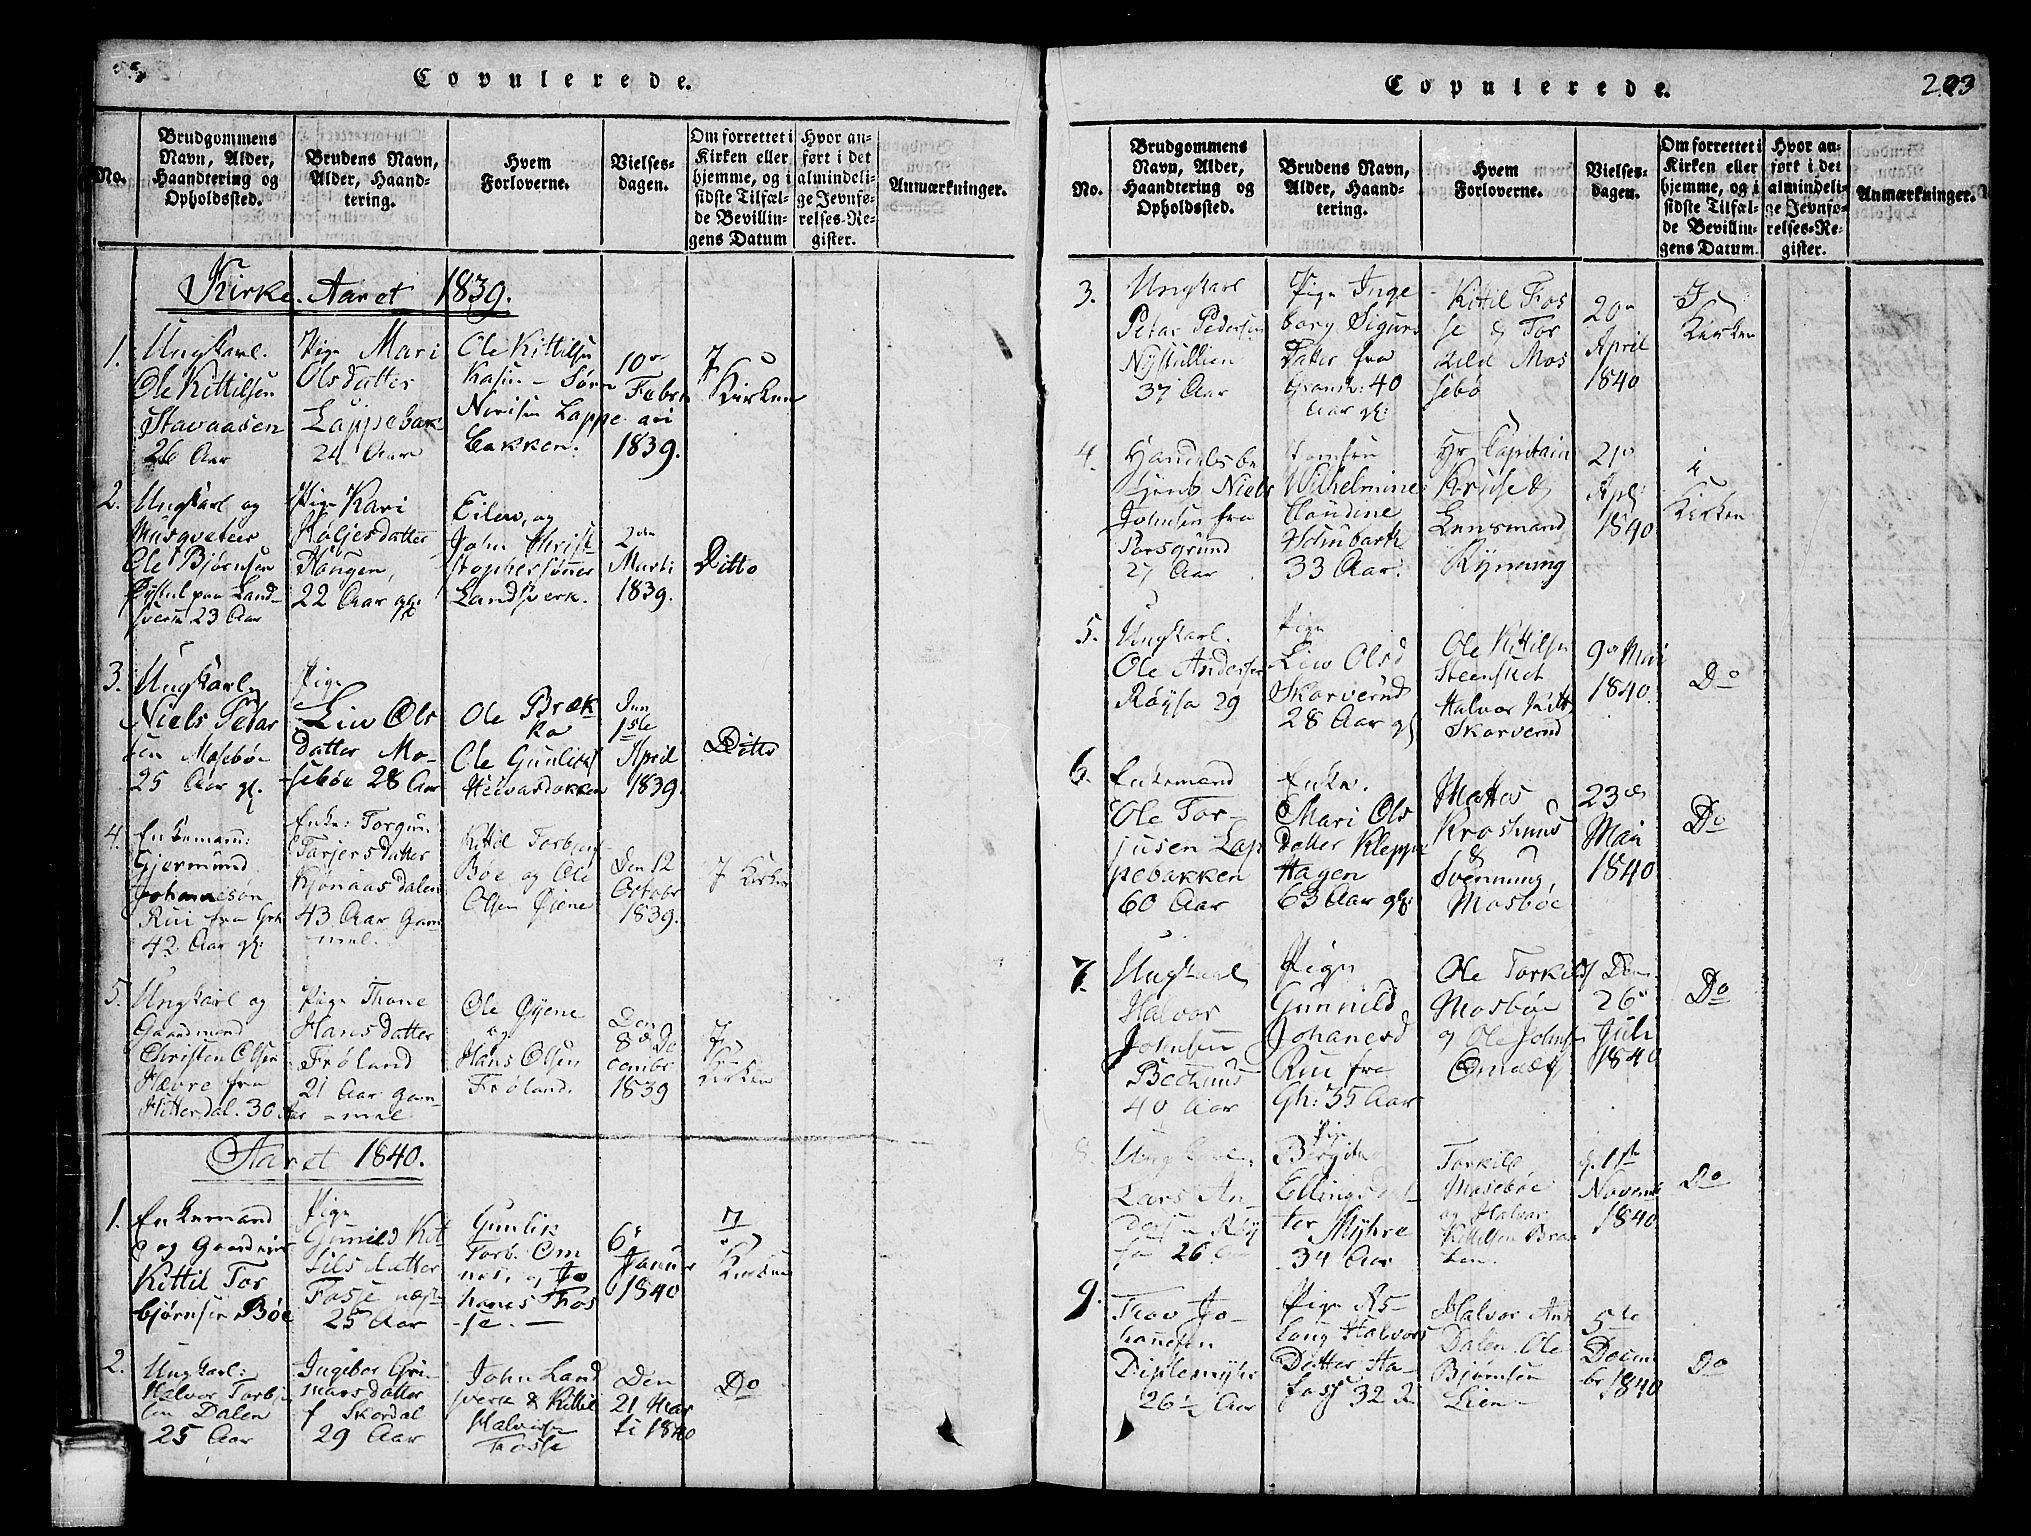 Copulerede.
No.
Brudgommens
Navn, Alder,
Haandtering og
Opholdssted.
Brudens Navn,
Alder, Haand-
tering.
Hvem
Forloverne.
Vielses-
dagen.
Om forrettet i
Kirken eller
hjemme, og i
sidste Tilfæl-
de Bevillin-
gens Datum
Hvor an-
ført i det
almindeli-
ge Jevnfø-
relses-Re-
gister.
Anmærkninger.
Kirke-Aaret 1839.
1.
Ungkarl.
Ole Kittilsen
Stavaasen
26 Aar
Pige Mari
Olsdatter
Lappebak
24 Aar
Ole Kittilsen
Kasin - Søren
Lappe-
bakken.
10de
Febru
ari
1839.
I
Kirken
2.
Ungkarl og
Musqveteer
Ole Bjørnsen
paa Land-
sverk 23 Aar
Pige Kari
Haugen,
22 Aar gl:
Eilev, og
John Christ
stophersønner
Landsverk.
2den
Marti
1839.
Ditto
3.
Ungkarl
Niels Petar
sen Mosebøe
25 Aar gl.
Pige
Liw Ols
datter Mo-
sebøe 28 Aar
Ole Bræk
ka
Ole Gunliks
Den
1ste
April
1839.
Ditto
4.
Enkemann:
Gjermund
Johannesøn
Rui fra Grh
42 Aar gl:
Enke: Torgun
Tarjersdatter
Kjønaasdalen
43 Aar gam
mel.
Kittil Torbjørn
Bøe og Ole
Olsen Øiene
Den 12
October
1839.
I Kirken
5.
Ungkarl og
Gaardmand
Christen Olsen
Hævre fra
Hitterdal. 30 Aar
Pige Thone
Hansdatter
Frøland
21 Aar gam-
mel
Ole Øyene
og
Hans Olsen
Frøland.
Den
8de De
cembr
1839
I
Kirken
Aaret 1840.
1.
Enkemand
og Gaardmand
Kittil Tor
bjørnsen Bøe
Pige
Gunild Kit
tilsdatter
Fosse
25 Aar
Gunlik
Torb: Om
nes, og Jo
hanes Fos
se.
6te
Januar
1840
I
Kirken
2.
Ungkarl:
Halvor Torbjøn
sen Dalen
25 Aar
Ingebor Gri-
marsdatter
f Skordal
29 Aar
John Land
sverk & Kittil
Halvorsen
Fosse
Den
21 Mar
ti 1840
Do
Copulerede.
203
No.
Brudgommens
Navn, Alder,
Haandtering og
Opholdssted.
Brudens Navn,
Alder, Haand-
tering.
Hvem
Forloverne.
Vielses-
dagen.
Om forrettet i
Kirken eller
hjemme, og i
sidste Tilfæl-
de Bevillin-
gens Datum.
Hvor an-
ført i det
almindeli-
ge Jevnfø-
relses-Re-
gister.
Anmærkninger.
3.
Ungkarl
Petar Pedersen
Nystullien
37 Aar
Pige Inge
borg Sigurs
datter fra
Gransh: 40
Aar gl:
Kittil Fos
se & Tor
kild Mos
sebø
20de
April
1840
I
Kirken
4.
Handelsbe
tjent Niels
Johnsen fra
Porsgrund
27 Aar
Jomfru
Wilhelmine
Claudine
33 Aar.
Hr Capitain
Kruse &
Lensmand
Rynning
21de
Apl:
1840
i
Kirken
5.
Ungkarl.
Ole Andersen
Røysa 29
Pige
Liw Olsd
Skarverud
28 Aar gl
Ole Kittilsen
Steenstad
Halvor Kitt
Skarverud
9de Mai
1840.
Do
6.
Enkemand
Ole Tor-
jusen Lap
pebakken
60 Aar
Enke.
Mari Ols
datter Kleppe
Hagen
63 Aar gl:
Mattes
Kroshuus
Svennung,
Mosbøe
23de
Maii
1840
Do
7.
Ungkarl
Halvor
Johnsen
40 Aar
Pige
Gunnild
Johanesd
Rui fra
Gh: 35 Aar
Ole Torkilds
Mosbøe
og Ole Johnsen
Omdal
Den
26de
Juli
1840
Do
8.
Ungkarl.
Lars An
dersen Røy
sa 26 Aar
Pige
Bergite
Ellingsdat
ter Myhre
34 Aar
Torkild
Mosebøe
og Halvor
Kittilsen Braa
ten.
d. 1ste
Novemb
1840
Do
9.
Trov Jo-
hannesen
26½ Aar
Pige As-
laug Halvors
Datter Ha-
foss 32
Halvor An
Dalen. Ole
Bjørnsen
Lien
5te
Decem
br 1840
Do